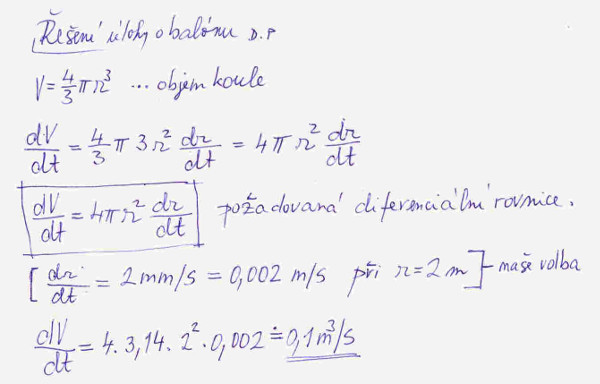 Řešení úlohy o balónu D.P
V = 4/3 πr³ ... objem koule
dV/dt = 4/3 π 3r² dr/dt = 4πr² dr/dt
dV/dt = 4πr² dr/dt požadovaná diferenciální rovnice.
[dr/dt = 2mm/s = 0,002 m/s při r = 2m] - naše volba
dV/dt = 4. 3,14. 2². 0,002 ≐ 0,1m³/s